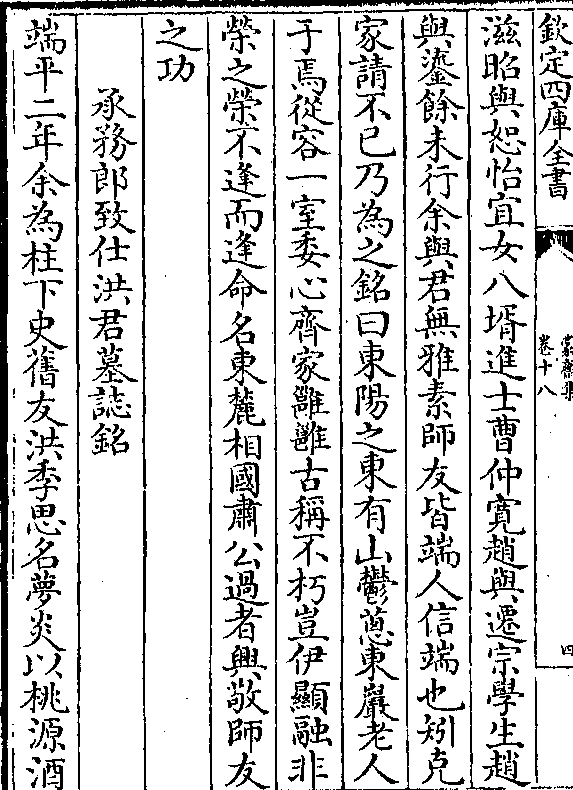 欽定四庫全書
蒙齋集
卷十八
四
滋昭與恕怡宜女八壻進士曹仲寛趙與遷宗學生趙
與鎏餘未行余與君無雅素師友皆端人信端也矧克
家請不已乃為之銘曰東陽之東有山鬱蔥東巖老人
于焉從容一室委心齊家雝雝古稱不朽豈伊顯融非
榮之榮不逢而逢命名東麓相國肅公過者興敬師友
之功
承務郎致仕洪君墓誌銘
端平二年余為柱下史舊友洪季思名夢炎以桃源酒